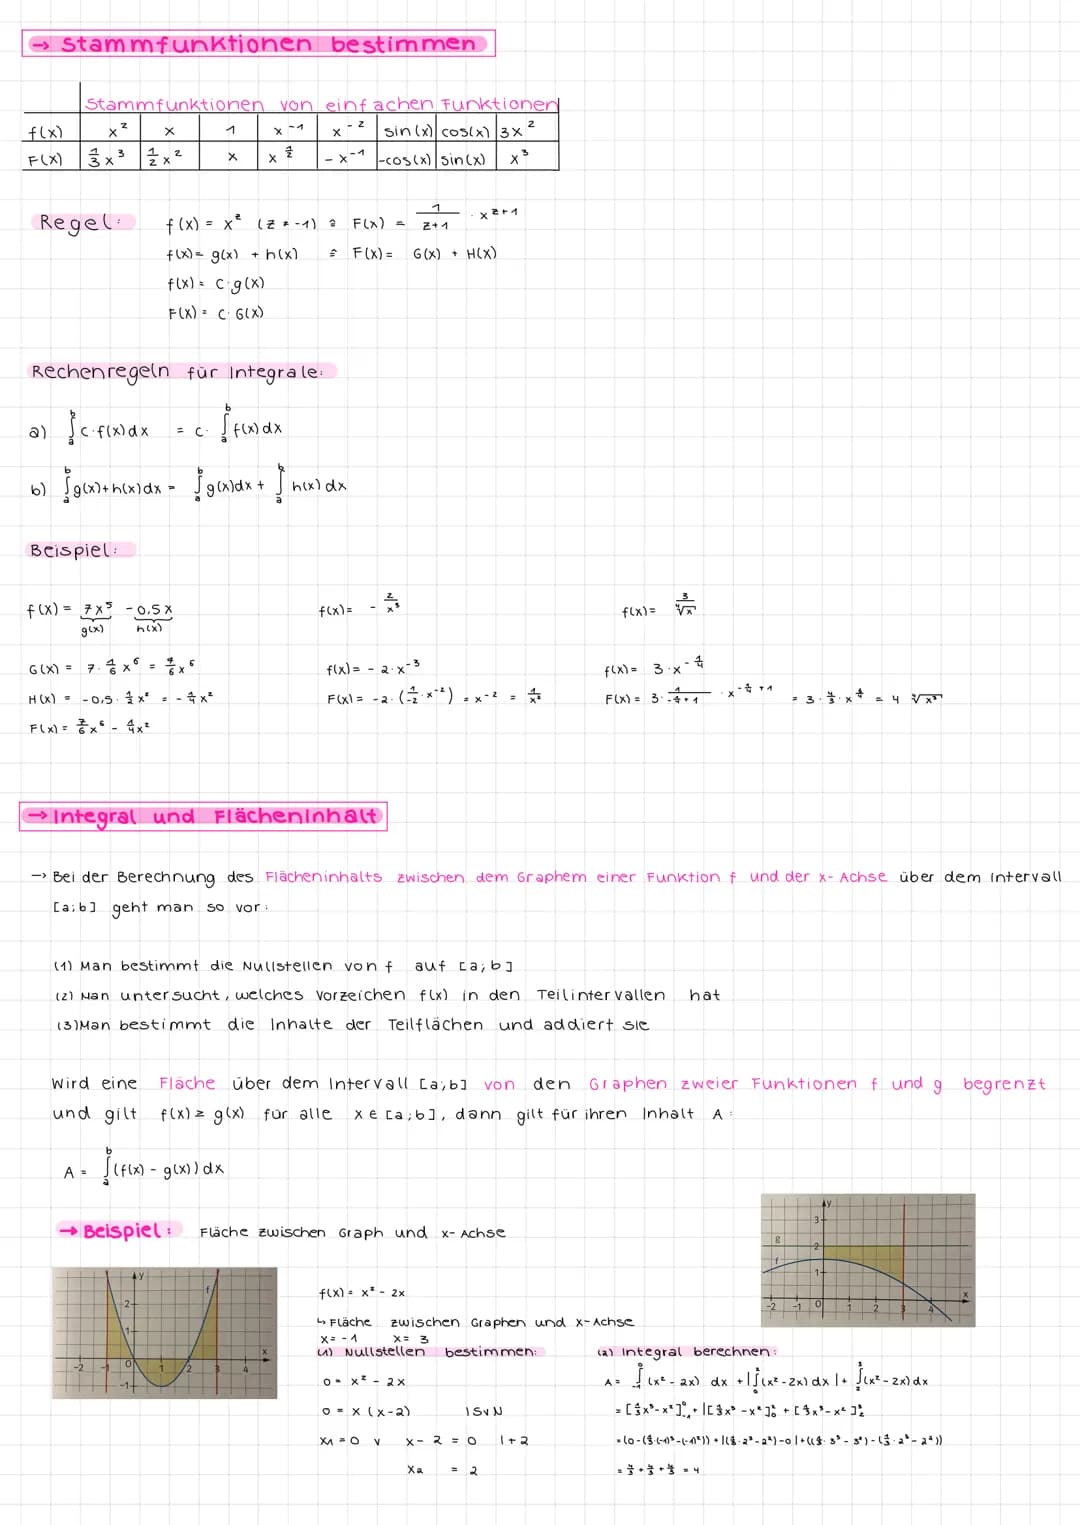 → Stammfunktionen bestimmen
Stammfunktionen von einfachen Funktionen
f(x) x² x 1 x⁻¹ x⁻² sin(x) cos(x) 3x²
F(x) 1/3 x³ 1/2 x² x x^(1/2) -x⁻¹ -cos(x) sin(x) x³
Regel:
f(x) = x^z (z ≠ -1) ≙ F(x) = 1/(z+1) · x^(z+1)
f(x) = g(x) + h(x) ≙ F(x) = G(x) + H(x)
f(x) = c·g(x)
F(x) = c·G(x)
Rechenregeln für Integrale:
a) ∫ₐᵇ c·f(x)dx = c· ∫ₐᵇ f(x)dx
b) ∫ₐᵇ g(x)+h(x)dx = ∫ₐᵇ g(x)dx + ∫ₐᵇ h(x)dx
Beispiel:
f(x) = 7x⁵ - 0,5x
g(x) h(x)
G(x) = 7·1/6 x⁶ = 7/6 x⁶
H(x) = -0,5·1/2 x² = -1/4 x²
F(x) = 7/6 x⁶ - 1/4 x²
f(x) = - 2/x³
f(x) = -2·x⁻³
F(x) = -2·(1/-2 · x⁻²) = x⁻² = 1/x²
f(x) = 3/⁴√x
f(x) = 3·x^(-1/4)
F(x) = 3· 1/(-1/4+1) · x^(-1/4+1) = 3·4/3·x^(3/4) = 4 ⁴√x³
→ Integral und Flächeninhalt
→ Bei der Berechnung des Flächeninhalts zwischen dem Graphem einer Funktion f und der x-Achse über dem Intervall
[a;b] geht man so vor:
(1) Man bestimmt die Nullstellen von f auf [a;b]
(2) Man untersucht, welches Vorzeichen f(x) in den Teilintervallen hat
(3) Man bestimmt die Inhalte der Teilflächen und addiert sie
Wird eine Fläche über dem Intervall [a;b] von den Graphen zweier Funktionen f und g begrenzt
und gilt f(x) ≥ g(x) für alle x ∈ [a;b], dann gilt für ihren Inhalt A:
A = ∫ₐᵇ (f(x) - g(x)) dx
→ Beispiel: Fläche zwischen Graph und x-Achse
y
f
2
1
-2 -1 0 1 2 3 4 x
-1
y
3
g 2
f
1
-2 -1 0 1 2 3 4 x
f(x) = x² - 2x
↳ Fläche zwischen Graphen und x-Achse
x = -1 x = 3
(1) Nullstellen bestimmen:
0 = x² - 2x
0 = x (x-2) | SvN
x₁ = 0 v x - 2 = 0 | +2
x₂ = 2
(2) Integral berechnen:
A = ∫₋₁⁰ (x² - 2x) dx + |∫₀² (x² - 2x) dx| + ∫₂³ (x² - 2x) dx
= [1/3x³ - x²]₋₁⁰ + |[1/3x³ - x²]₀²| + [1/3x³ - x²]₂³
= (0 - (1/3·(-1)³ - (-1)²)) + |(1/3·2³ - 2²) - 0| + ((1/3·3³ - 3²) - (1/3·2³ - 2²))
= 4/3 + 4/3 + 4/3 = 4